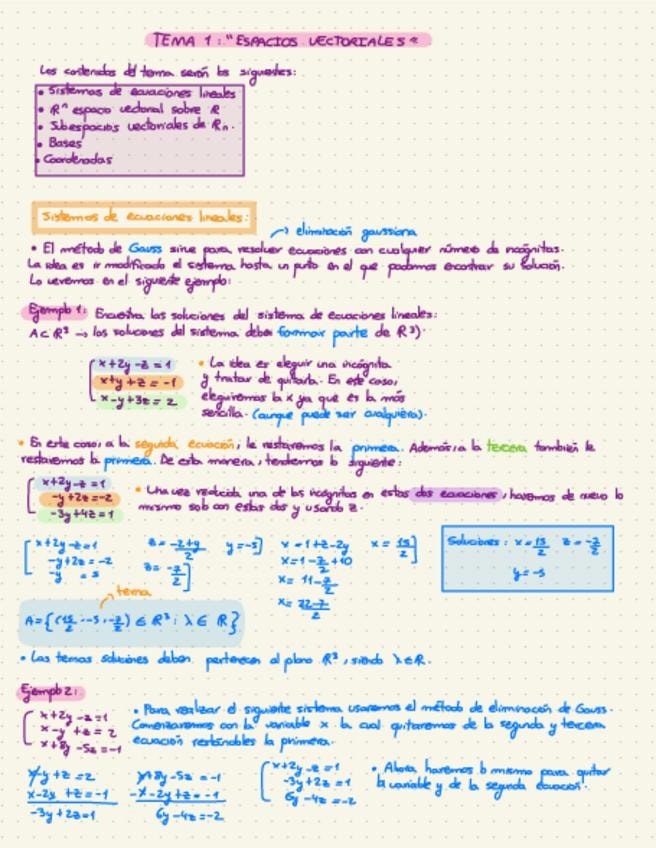 TEMA 1: "ESPACIOS VECTORIALES"
Los contenidos del tema serán los siguientes:
• Sistemas de ecuaciones lineales
• Rⁿ espacio vectorial sobre R
• Subespacios vectoriales de Rn.
• Bases
• Coordenadas
Sistemas de ecuaciones lineales:
→ eliminación gaussiana
• El método de Gauss sirve para resolver ecuaciones con cualquier número de incógnitas.
La idea es ir modificado el sistema hasta un puto en el que podamos encontrar su solución.
Lo veremos en el siguiente ejemplo:
Ejemplo 1: Encuentra las soluciones del sistema de ecuaciones lineales:
A⊂R³ → las soluciones del sistema deben formar parte de R³)·
x+2y-z=1
x+y+z=-1
x-y+3z=2
• La idea es eleguir una incógnita
y tratar de quitarla. En este caso,
eleguiremos la x ya que es la más
sencilla. (aunque puede ser cualquiera).
• En este caso, a la segunda ecuación, le restaremos la primera. Además, a la tercera también le
restaremos la primera. De esta manera, tendremos lo siguiente:
x+2y-z=1
-y+2z=-2
-3y+4z=1
• Una vez reducida una de las incógnitas en estas dos ecuaciones, haremos de nuevo lo
mismo solo con estas dos y usando z.
x+2y-z=1
-y+2z=-2
-y = 5
z=-2+y/2
z=-7/2
y=-5
x=1+z-2y
x=1-7/2+10
x=11-7/2
x=22-7/2
x=15/2
Soluciones: x=15/2 z=-7/2
y=-5
tema
A={(15/2,-5,-7/2) ∈ R³: λ ∈ R}
• Las temas soluciones deben pertenecer al plano R³, siendo λ∈R.
Ejemplo 2:
x+2y-z=1
x-y+z=2
x+8y-5z=-1
• Para realizar el siguiente sistema usaremos el método de eliminación de Gauss.
Comenzaremos con la variable x la cual quitaremos de la segunda y tercera
ecuación restándoles la primera.
x-y+z=2
x-2y+z=-1
-3y+2z=1
x+8y-5z=-1
-x-2y+z=-1
6y-4z=-2
x+2y-z=1
-3y+2z=1
6y-4z=-2
• Ahora haremos lo mismo para quitar
la variable y de la segunda ecuación.